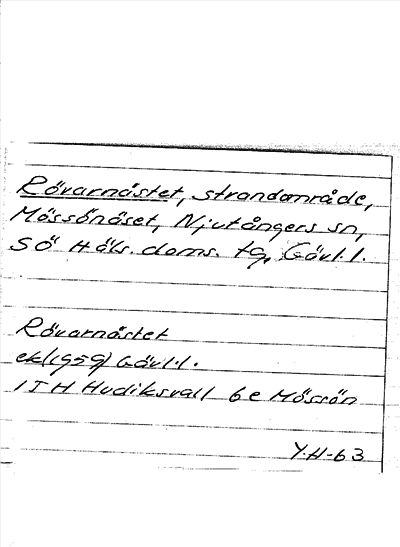 Rövarnästet, strandområde,
Mössönäset, Njutångers sn,
SÖ Häls. doms. tg, Gävl.l.
Rövarnästet
ek(1959) Gävl.l.
1JH Hudiksvall 6e Mössön
Y.H-63